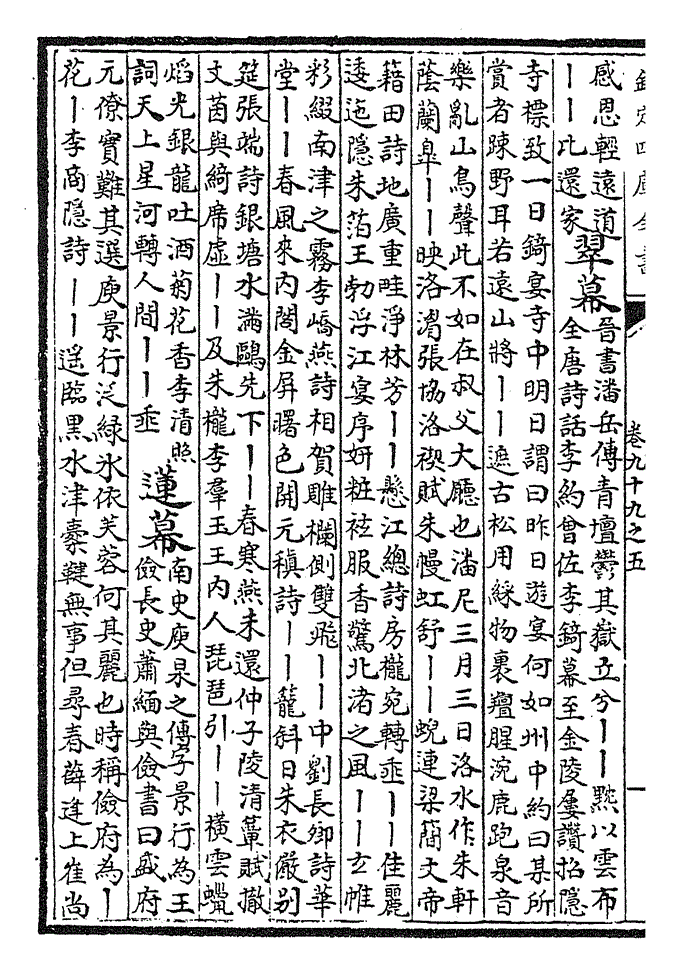 欽定四庫全書
卷九十九之五
一
感恩輕遠道
丨丨比還家
翠幕
晉書潘岳傳青壇鬱其嶽立兮丨丨黮以雲布
全唐詩話李約曾佐李錡幕至金陵屢讚招隱
寺標致一日錡宴寺中明日謂曰昨日遊宴何如州中約曰某所
賞者疎野耳若遠山將丨丨遮古松用綵物裹羶腥涴鹿跑泉音
樂亂山鳥聲此不如在叔父大廳也潘尼三月三日洛水作朱軒
蔭蘭臯丨丨映洛湄張協洛禊賦朱幔虹舒丨丨蜺連梁簡文帝
籍田詩地廣重畦淨林芳丨丨懸江總詩房櫳宛轉垂丨丨佳麗
逶迤隱朱箔王勃浮江宴序妍粧袨服香驚北渚之風丨丨玄帷
彩綴南津之霧李嶠燕詩相賀雕欄側雙飛丨丨中劉長卿詩華
堂丨丨春風來内閤金屏曙色開元稹詩丨丨籠斜日朱衣儼别
筵張端詩銀塘水滿鷗先下丨丨春寒燕未還仲子陵清簟賦撤
文茵與綺席虛丨丨及朱櫳李羣玉王内人琵琶引丨丨横雲蠟
焰光銀龍吐酒菊花香李清照
詞天上星河轉人間丨丨垂
蓮幕
南史庾杲之傳字景行為王
儉長史蕭緬與儉書曰盛府
元僚實難其選庾景行泛綠水依芙蓉何其麗也時稱儉府為丨
花丨李商隱詩丨丨遥臨黑水津櫜鞬無事但尋春薛逢上崔尚